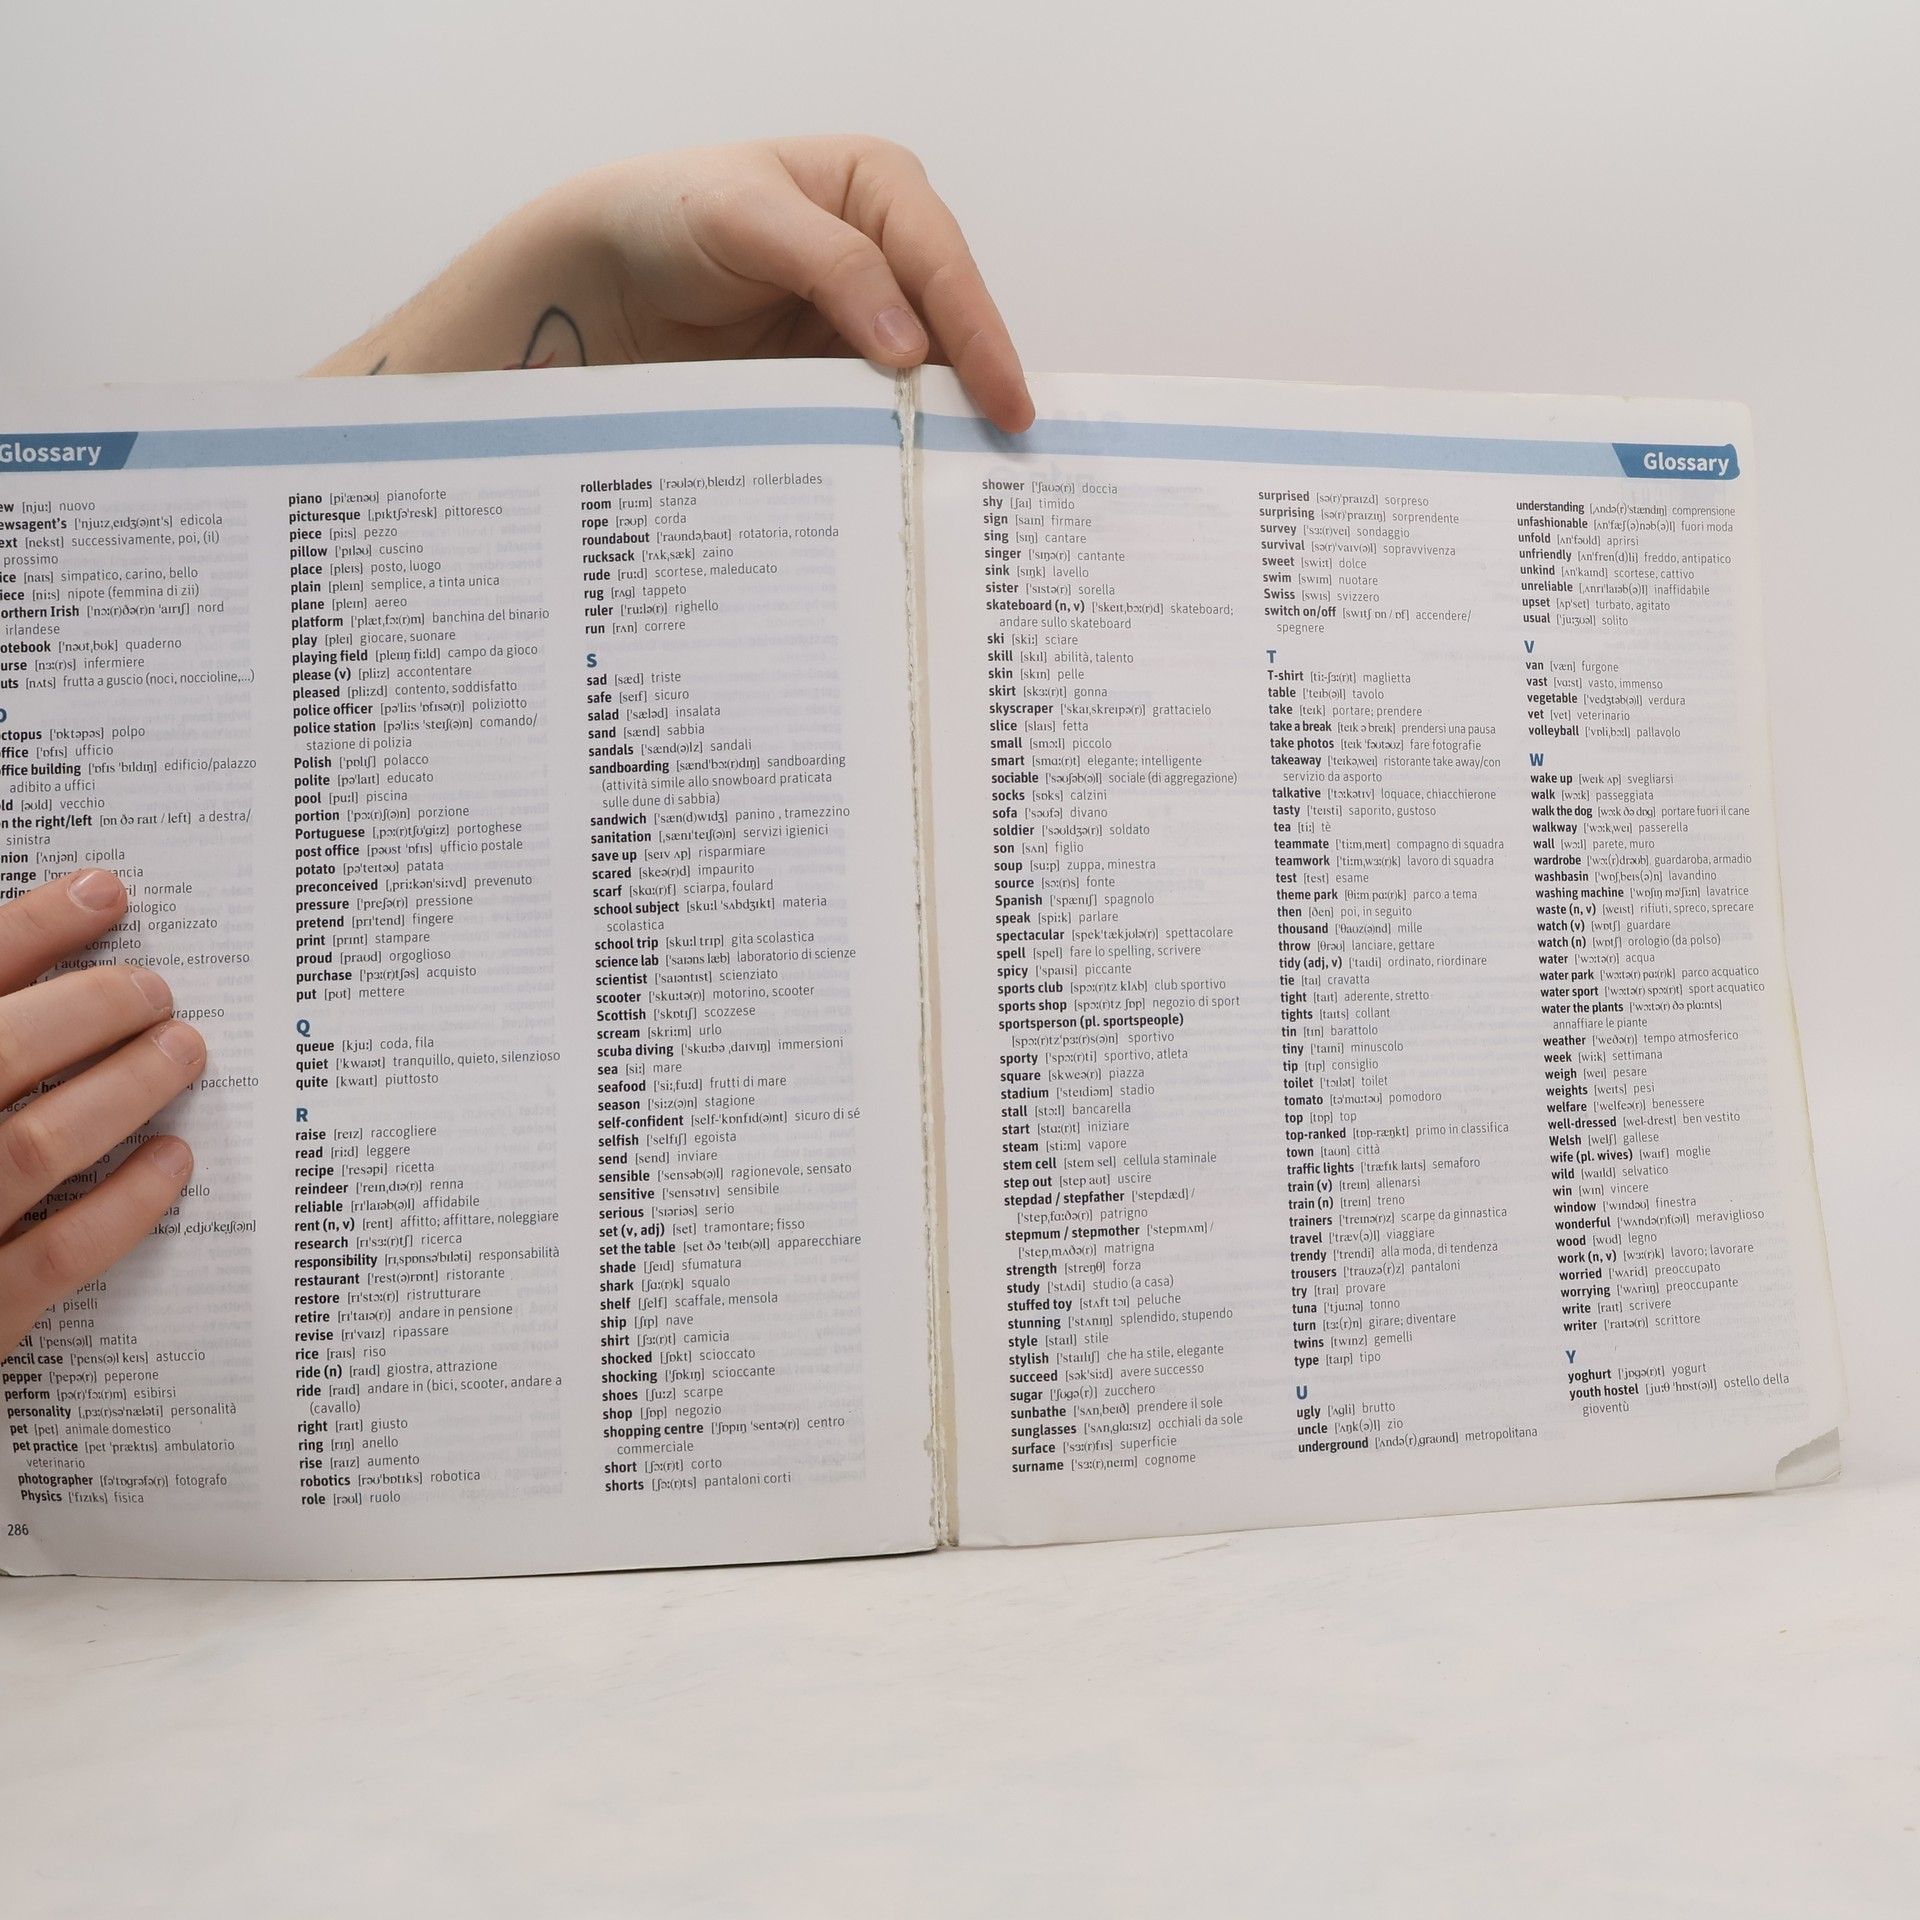 Glossary
nuovo
['nju:z,eɪdʒ(ə)nt's] edicola
[nekst] successivamente, poi, (il)
prossimo
[naɪs] simpatico, carino, bello
[ni:s] nipote (femmina di zii)
Irish ['nɔ:(r)ðə(r)n 'aɪrɪʃ] nord
irlandese
['nəʊt,bʊk] quaderno
[nɜ:(r)s] infermiere
[nʌts] frutta a guscio (noci, noccioline,...)
['ɒktəpəs] polpo
['ɒfɪs] ufficio
building ['ɒfɪs 'bɪldɪŋ] edificio/palazzo
adibito a uffici
[əʊld] vecchio
the right/left [ɒn ðə raɪt / left] a destra/
sinistra
['ʌnjən] cipolla
normale
organizzato
completo
socievole, estroverso
pacchetto
piselli
penna
['pens(ə)l] matita
pencil case ['pens(ə)l keɪs] astuccio
pepper ['pepə(r)] peperone
perform [pə(r)'fɔ:(r)m] esibirsi
personality [,pɜ:(r)sə'næləti] personalità
pet [pet] animale domestico
pet practice [pet 'præktɪs] ambulatorio
veterinario
photographer [fə'tɒgrəfə(r)] fotografo
Physics ['fɪzɪks] fisica
286
piano [pi'ænəʊ] pianoforte
picturesque [,pɪktʃə'resk] pittoresco
piece [pi:s] pezzo
pillow ['pɪləʊ] cuscino
place [pleɪs] posto, luogo
plain [pleɪn] semplice, a tinta unica
plane [pleɪn] aereo
platform ['plæt,fɔ:(r)m] banchina del binario
play [pleɪ] giocare, suonare
playing field [pleɪɪŋ fi:ld] campo da gioco
please (v) [pli:z] accontentare
pleased [pli:zd] contento, soddisfatto
police officer [pə'li:s 'ɒfɪsə(r)] poliziotto
police station [pə'li:s 'steɪʃ(ə)n] comando/
stazione di polizia
Polish ['pəʊlɪʃ] polacco
polite [pə'laɪt] educato
pool [pu:l] piscina
portion ['pɔ:(r)ʃ(ə)n] porzione
Portuguese [,pɔ:(r)tʃʊ'gi:z] portoghese
post office [pəʊst 'ɒfɪs] ufficio postale
potato [pə'teɪtəʊ] patata
preconceived [,pri:kən'si:vd] prevenuto
pressure ['preʃə(r)] pressione
pretend [prɪ'tend] fingere
print [prɪnt] stampare
proud [praʊd] orgoglioso
purchase ['pɜ:(r)tʃəs] acquisto
put [pʊt] mettere
Q
queue [kju:] coda, fila
quiet ['kwaɪət] tranquillo, quieto, silenzioso
quite [kwaɪt] piuttosto
R
raise [reɪz] raccogliere
read [ri:d] leggere
recipe ['resəpi] ricetta
reindeer ['reɪn,dɪə(r)] renna
reliable [rɪ'laɪəb(ə)l] affidabile
rent (n, v) [rent] affitto; affittare, noleggiare
research [rɪ'sɜ:(r)tʃ] ricerca
responsibility [rɪ,spɒnsə'bɪləti] responsabilità
restaurant ['rest(ə)rɒnt] ristorante
restore [rɪ'stɔ:(r)] ristrutturare
retire [rɪ'taɪə(r)] andare in pensione
revise [rɪ'vaɪz] ripassare
rice [raɪs] riso
ride (n) [raɪd] giostra, attrazione
ride [raɪd] andare in (bici, scooter, andare a
(cavallo)
right [raɪt] giusto
ring [rɪŋ] anello
rise [raɪz] aumento
robotics [rəʊ'bɒtɪks] robotica
role [rəʊl] ruolo
rollerblades ['rəʊlə(r),bleɪdz] rollerblades
room [ru:m] stanza
rope [rəʊp] corda
roundabout ['raʊndə,baʊt] rotatoria, rotonda
rucksack ['rʌk,sæk] zaino
rude [ru:d] scortese, maleducato
rug [rʌg] tappeto
ruler ['ru:lə(r)] righello
run [rʌn] correre
S
sad [sæd] triste
safe [seɪf] sicuro
salad ['sæləd] insalata
sand [sænd] sabbia
sandals ['sænd(ə)lz] sandali
sandboarding [sænd'bɔ:(r)dɪŋ] sandboarding
(attività simile allo snowboard praticata
sulle dune di sabbia)
sandwich ['sæn(d)wɪdʒ] panino , tramezzino
sanitation [,sænɪ'teɪʃ(ə)n] servizi igienici
save up [seɪv ʌp] risparmiare
scared [skeə(r)d] impaurito
scarf [skɑ:(r)f] sciarpa, foulard
school subject [sku:l 'sʌbdʒɪkt] materia
scolastica
school trip [sku:l trɪp] gita scolastica
science lab ['saɪəns læb] laboratorio di scienze
scientist ['saɪəntɪst] scienziato
scooter ['sku:tə(r)] motorino, scooter
Scottish ['skɒtɪʃ] scozzese
scream [skri:m] urlo
scuba diving ['sku:bə ,daɪvɪŋ] immersioni
sea [si:] mare
seafood ['si:,fu:d] frutti di mare
season ['si:z(ə)n] stagione
self-confident [self-'kɒnfɪd(ə)nt] sicuro di sé
selfish ['selfɪʃ] egoista
send [send] inviare
sensible ['sensəb(ə)l] ragionevole, sensato
sensitive ['sensətɪv] sensibile
serious ['sɪəriəs] serio
set (v, adj) [set] tramontare; fisso
set the table [set ðə 'teɪb(ə)l] apparecchiare
shade [ʃeɪd] sfumatura
shark [ʃɑ:(r)k] squalo
shelf [ʃelf] scaffale, mensola
ship [ʃɪp] nave
shirt [ʃɜ:(r)t] camicia
shocked [ʃɒkt] scioccato
shocking ['ʃɒkɪŋ] scioccante
shoes [ʃu:z] scarpe
shop [ʃɒp] negozio
shopping centre ['ʃɒpɪŋ 'sentə(r)] centro
commerciale
short [ʃɔ:(r)t] corto
shorts [ʃɔ:(r)ts] pantaloni corti
Glossary
shower ['ʃaʊə(r)] doccia
shy [ʃaɪ] timido
sign [saɪn] firmare
sing [sɪŋ] cantare
singer ['sɪŋə(r)] cantante
sink [sɪŋk] lavello
sister ['sɪstə(r)] sorella
skateboard (n, v) ['skeɪt,bɔ:(r)d] skateboard;
andare sullo skateboard
ski [ski:] sciare
skill [skɪl] abilità, talento
skin [skɪn] pelle
skirt [skɜ:(r)t] gonna
skyscraper ['skaɪ,skreɪpə(r)] grattacielo
slice [slaɪs] fetta
small [smɔ:l] piccolo
smart [smɑ:(r)t] elegante; intelligente
sociable ['səʊʃəb(ə)l] sociale (di aggregazione)
socks [sɒks] calzini
sofa ['səʊfə] divano
soldier ['səʊldʒə(r)] soldato
son [sʌn] figlio
soup [su:p] zuppa, minestra
source [sɔ:(r)s] fonte
Spanish ['spænɪʃ] spagnolo
speak [spi:k] parlare
spectacular [spek'tækjʊlə(r)] spettacolare
spell [spel] fare lo spelling, scrivere
spicy ['spaɪsi] piccante
sports club [spɔ:(r)tz klʌb] club sportivo
sports shop [spɔ:(r)tz ʃɒp] negozio di sport
sportsperson (pl. sportspeople)
[spɔ:(r)tz'pɜ:(r)s(ə)n] sportivo
sporty ['spɔ:(r)ti] sportivo, atleta
square [skweə(r)] piazza
stadium ['steɪdiəm] stadio
stall [stɔ:l] bancarella
start [stɑ:(r)t] iniziare
steam [sti:m] vapore
stem cell [stem sel] cellula staminale
step out [step aʊt] uscire
stepdad / stepfather ['stepdæd] /
['step,fɑ:ðə(r)] patrigno
stepmum / stepmother ['stepmʌm] /
['step,mʌðə(r)] matrigna
strength [streŋθ] forza
study ['stʌdi] studio (a casa)
stuffed toy [stʌft tɔɪ] peluche
stunning ['stʌnɪŋ] splendido, stupendo
style [staɪl] stile
stylish ['staɪlɪʃ] che ha stile, elegante
succeed [sək'si:d] avere successo
sugar ['ʃʊgə(r)] zucchero
sunbathe ['sʌn,beɪð] prendere il sole
sunglasses ['sʌn,glɑ:sɪz] occhiali da sole
surface ['sɜ:(r)fɪs] superficie
surname ['sɜ:(r),neɪm] cognome
surprised [sə(r)'praɪzd] sorpreso
surprising [sə(r)'praɪzɪŋ] sorprendente
survey ['sɜ:(r)veɪ] sondaggio
survival [sə(r)'vaɪv(ə)l] sopravvivenza
sweet [swi:t] dolce
swim [swɪm] nuotare
Swiss [swɪs] svizzero
switch on/off [swɪtʃ ɒn / ɒf] accendere/
spegnere
T
T-shirt [ti:-ʃɜ:(r)t] maglietta
table ['teɪb(ə)l] tavolo
take [teɪk] portare; prendere
take a break [teɪk ə breɪk] prendersi una pausa
take photos [teɪk 'fəʊtəʊz] fare fotografie
takeaway ['teɪkə,weɪ] ristorante take away/con
servizio da asporto
talkative ['tɔ:kətɪv] loquace, chiacchierone
tasty ['teɪsti] saporito, gustoso
tea [ti:] tè
teammate ['ti:m,meɪt] compagno di squadra
teamwork ['ti:m,wɜ:(r)k] lavoro di squadra
test [test] esame
theme park [θi:m pɑ:(r)k] parco a tema
then [ðen] poi, in seguito
thousand ['θaʊz(ə)nd] mille
throw [θrəʊ] lanciare, gettare
tidy (adj, v) ['taɪdi] ordinato, riordinare
tie [taɪ] cravatta
tight [taɪt] aderente, stretto
tights [taɪts] collant
tin [tɪn] barattolo
tiny ['taɪni] minuscolo
tip [tɪp] consiglio
toilet ['tɔɪlət] toilet
tomato [tə'mɑ:təʊ] pomodoro
top [tɒp] top
top-ranked [tɒp-ræŋkt] primo in classifica
town [taʊn] città
traffic lights ['træfɪk laɪts] semaforo
train (v) [treɪn] allenarsi
train (n) [treɪn] treno
trainers ['treɪnə(r)z] scarpe da ginnastica
travel ['træv(ə)l] viaggiare
trendy ['trendi] alla moda, di tendenza
trousers ['traʊzə(r)z] pantaloni
try [traɪ] provare
tuna ['tju:nə] tonno
turn [tɜ:(r)n] girare; diventare
twins [twɪnz] gemelli
type [taɪp] tipo
U
ugly ['ʌgli] brutto
uncle ['ʌŋk(ə)l] zio
underground ['ʌndə(r),graʊnd] metropolitana
understanding [ʌndə(r)'stændɪŋ] comprensione
unfashionable [ʌn'fæʃ(ə)nəb(ə)l] fuori moda
unfold [ʌn'fəʊld] aprirsi
unfriendly [ʌn'fren(d)li] freddo, antipatico
unkind [ʌn'kaɪnd] scortese, cattivo
unreliable [,ʌnrɪ'laɪəb(ə)l] inaffidabile
upset [ʌp'set] turbato, agitato
usual ['ju:ʒʊəl] solito
V
van [væn] furgone
vast [vɑ:st] vasto, immenso
vegetable ['vedʒtəb(ə)l] verdura
vet [vet] veterinario
volleyball ['vɒli,bɔ:l] pallavolo
W
wake up [weɪk ʌp] svegliarsi
walk [wɔ:k] passeggiata
walk the dog [wɔ:k ðə dɒg] portare fuori il cane
walkway ['wɔ:k,weɪ] passerella
wall [wɔ:l] parete, muro
wardrobe ['wɔ:(r)drəʊb] guardaroba, armadio
washbasin ['wɒʃ,beɪs(ə)n] lavandino
washing machine ['wɒʃɪŋ mə'ʃi:n] lavatrice
waste (n, v) [weɪst] rifiuti, spreco, sprecare
watch (v) [wɒtʃ] guardare
watch (n) [wɒtʃ] orologio (da polso)
water ['wɔ:tə(r)] acqua
water park ['wɔ:tə(r) pɑ:(r)k] parco acquatico
water sport ['wɔ:tə(r) spɔ:(r)t] sport acquatico
water the plants ['wɔ:tə(r) ðə plɑ:nts]
annaffiare le piante
weather ['weðə(r)] tempo atmosferico
week [wi:k] settimana
weigh [weɪ] pesare
weights [weɪts] pesi
welfare ['welfeə(r)] benessere
well-dressed [wel-drest] ben vestito
Welsh [welʃ] gallese
wife (pl. wives) [waɪf] moglie
wild [waɪld] selvatico
win [wɪn] vincere
window ['wɪndəʊ] finestra
wonderful ['wʌndə(r)f(ə)l] meraviglioso
wood [wʊd] legno
work (n, v) [wɜ:(r)k] lavoro; lavorare
worried ['wʌrid] preoccupato
worrying ['wʌriɪŋ] preoccupante
write [raɪt] scrivere
writer ['raɪtə(r)] scrittore
Y
yoghurt ['jɒgə(r)t] yogurt
youth hostel [ju:θ 'hɒst(ə)l] ostello della
gioventù